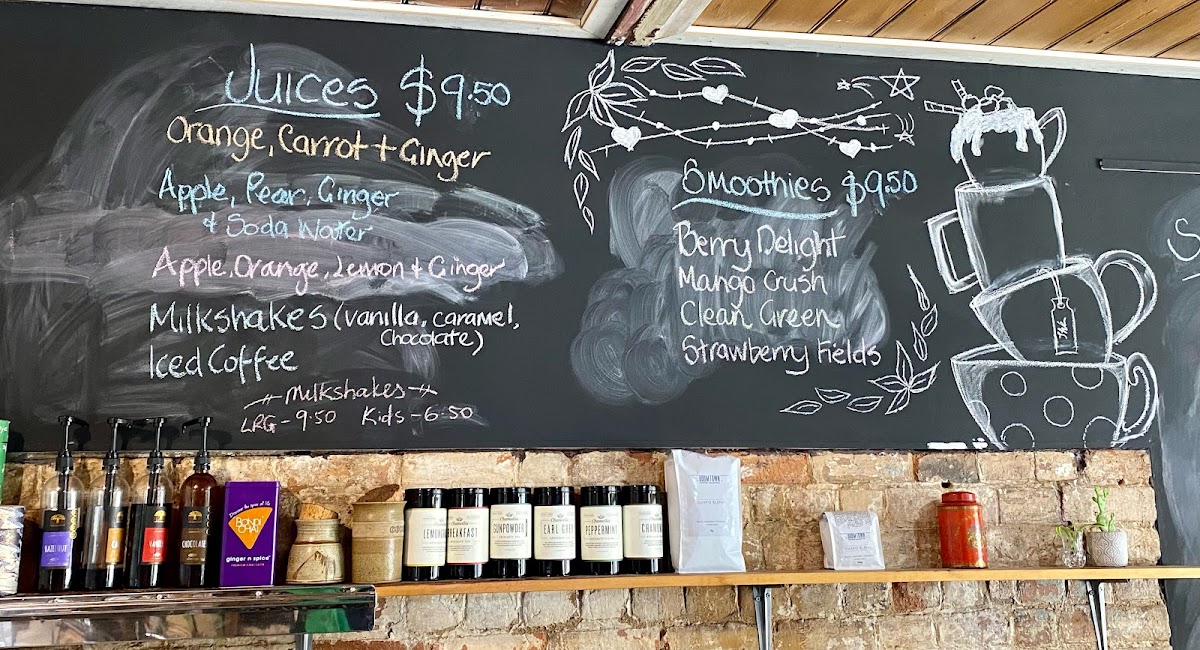 Juices $9.50
Orange, Carrot + Ginger
Apple, Pear, Ginger
& Soda Water
Apple, Orange, Lemon & Ginger
Milkshakes (vanilla, caramel,
Chocolate)
Iced Coffee
Milkshakes
LRG - 9.50 Kids - 6.50
Smoothies $9.50
Berry Delight
Mango Crush
Clean Green
Strawberry Fields
Tea
S
HAZELNUT
VANILLA
CHOCOLATE
BONDI
CHAI
ginger n spice
BREAKFAST
GUNPOWDER
EARL GREY
PEPPERMINT